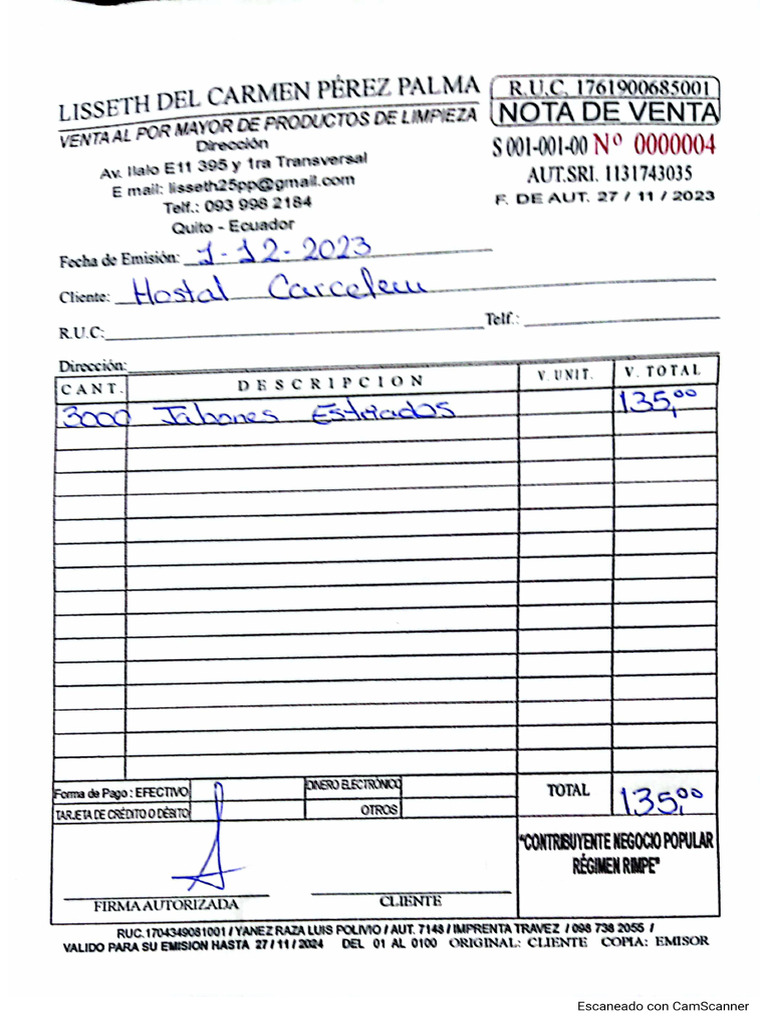 LISSETH DEL CARMEN PÉREZ PALMA
VENTA AL POR MAYOR DE PRODUCTOS DE LIMPIEZA
Dirección
Av. Ilalo E11 395 y 1ra Transversal
E mail: lisseth25pp@gmail.com
Telf.: 093 998 2184
Quito - Ecuador
R.U.C. 1761900685001
NOTA DE VENTA
S 001-001-00 Nº 0000004
AUT.SRI. 1131743035
F. DE AUT. 27 / 11 / 2023
Fecha de Emisión: 1-12-2023
Cliente: Hostal Carcelen
R.U.C:
Telf.:
Dirección:
CANT. DESCRIPCION V. UNIT. V. TOTAL
3000 Jabones Estriados 135,00
Forma de Pago : EFECTIVO
DINERO ELECTRÓNICO
TARJETA DE CRÉDITO O DÉBITO
OTROS
TOTAL 135,00
"CONTRIBUYENTE NEGOCIO POPULAR
RÉGIMEN RIMPE"
FIRMA AUTORIZADA
CLIENTE
RUC.1704349081001 / YANEZ RAZA LUIS POLIVIO / AUT. 7148 / IMPRENTA TRAVEZ / 098 738 2055 /
VALIDO PARA SU EMISION HASTA 27 / 11 / 2024 DEL 01 AL 0100 ORIGINAL: CLIENTE COPIA: EMISOR
Escaneado con CamScanner